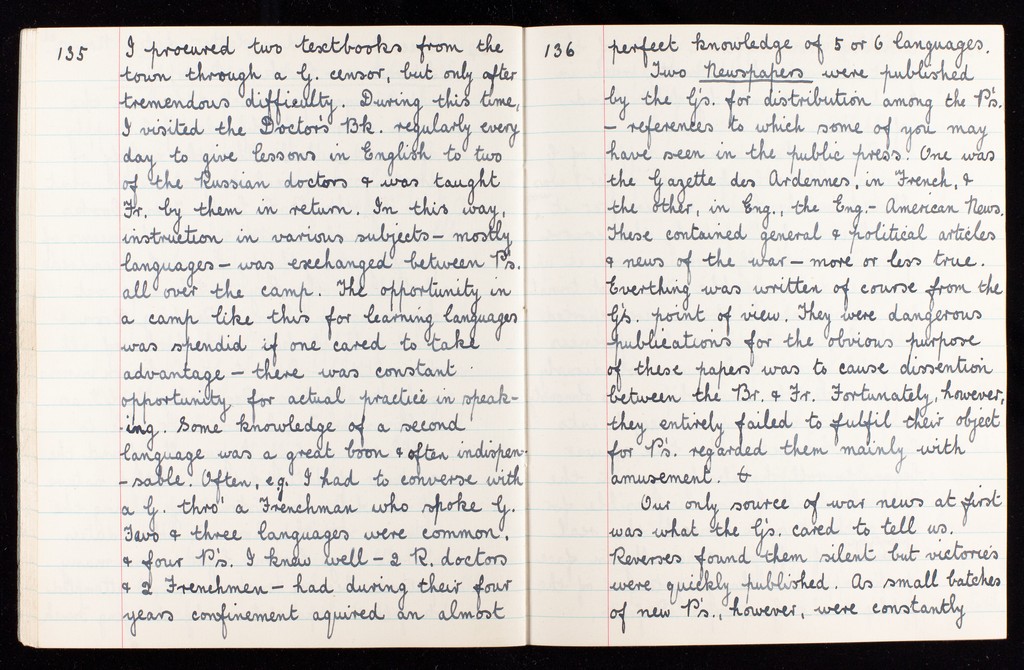 135
I procured two textbooks from the
town through a G. censor, but only after
tremendous difficulty. During this time,
I visited the Doctor's Bk. regularly every
day to give lessons in English to two
of the Russian doctors & was taught
Fr. by them in return. In this way,
instruction in various subjects – mostly
languages – was exchanged between P's.
all over the camp. The opportunity in
a camp like this for learning languages
was spendid if one cared to take
advantage – there was constant
opportunity for actual practice in speak-
-ing. Some knowledge of a second
language was a great boon & often indispen-
-sable. Often, e.g. I had to converse with
a G. thro' a Frenchman who spoke G.
Two & three languages were common,
& four P's. I knew well – 2 R. doctors
& 2 Frenchmen – had during their four
years confinement aquired an almost
136
perfect knowledge of 5 or 6 languages.
Two Newspapers were published
by the G's. for distribution among the P's.
– references to which some of you may
have seen in the public press. One was
the Gazette des Ardennes, in French, &
the other, in Eng., the Eng.- American News.
These contained general & political articles
& news of the war – more or less true.
Everthing was written of course from the
G's. point of view. They were dangerous
publications for the obvious purpose
of these papers was to cause dissention
between the Br. & Fr. Fortunately, however,
they entirely failed to fulfil their object
for P's. regarded them mainly with
amusement. &
Our only source of war news at first
was what the G's. cared to tell us.
Reverses found them silent but victories
were quickly published. As small batches
of new P's., however, were constantly